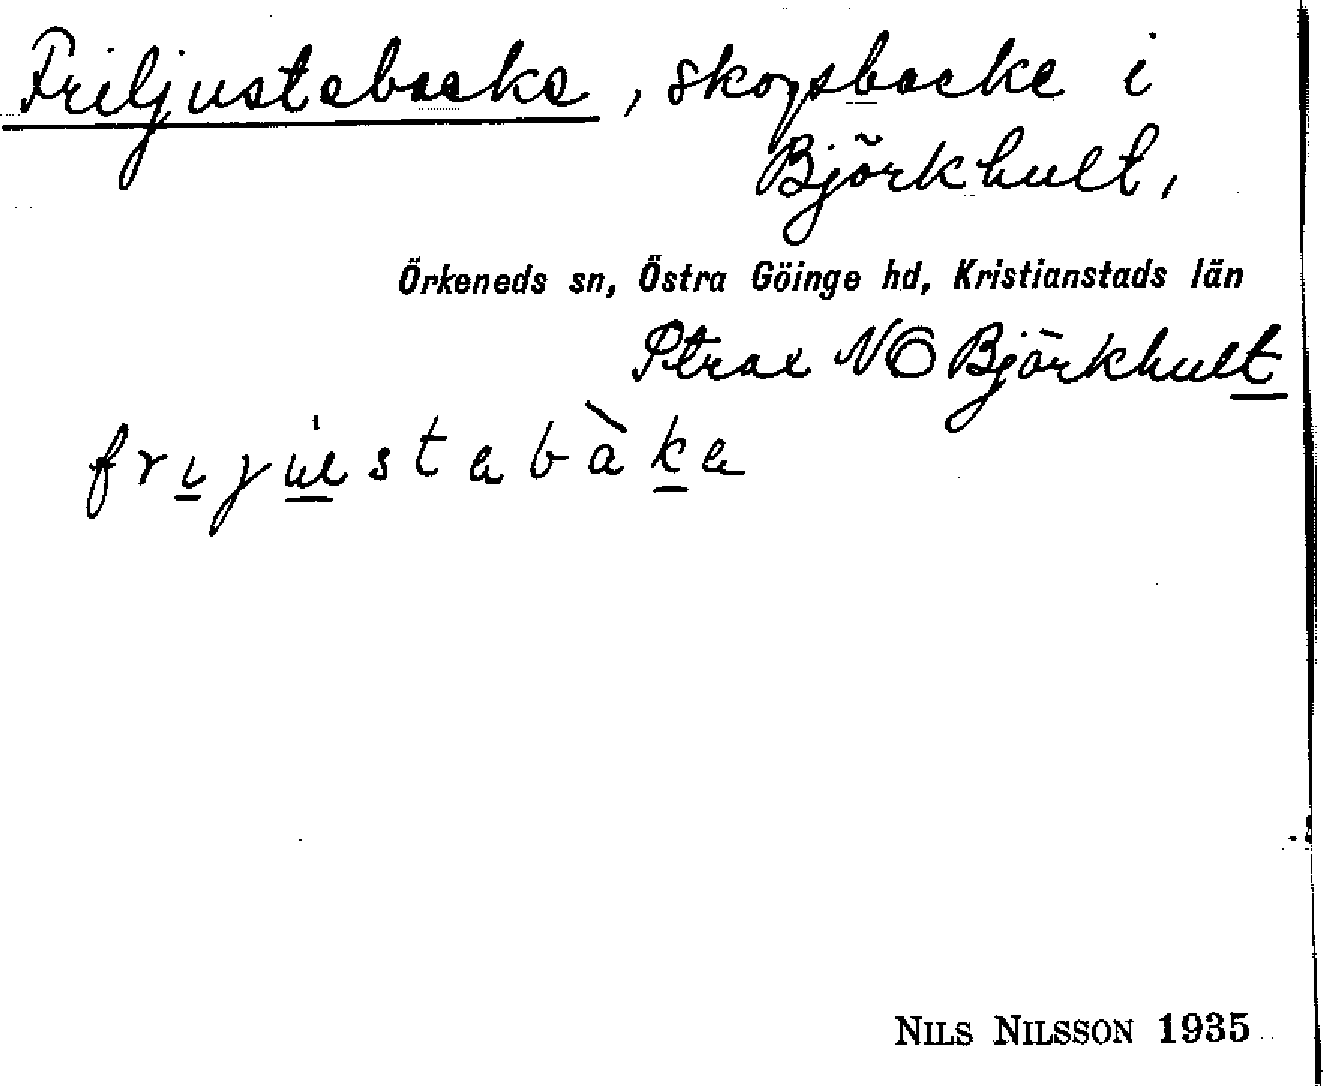 Friljustabacke, skogsbacke i
Björkhult,
Örkeneds sn, Östra Göinge hd, Kristianstads län
Strax NO Björkhult
frijustabàka
NILS NILSSON 1935